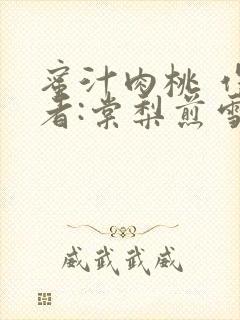 蜜汁肉桃 作
者:棠梨煎雪
威武武威